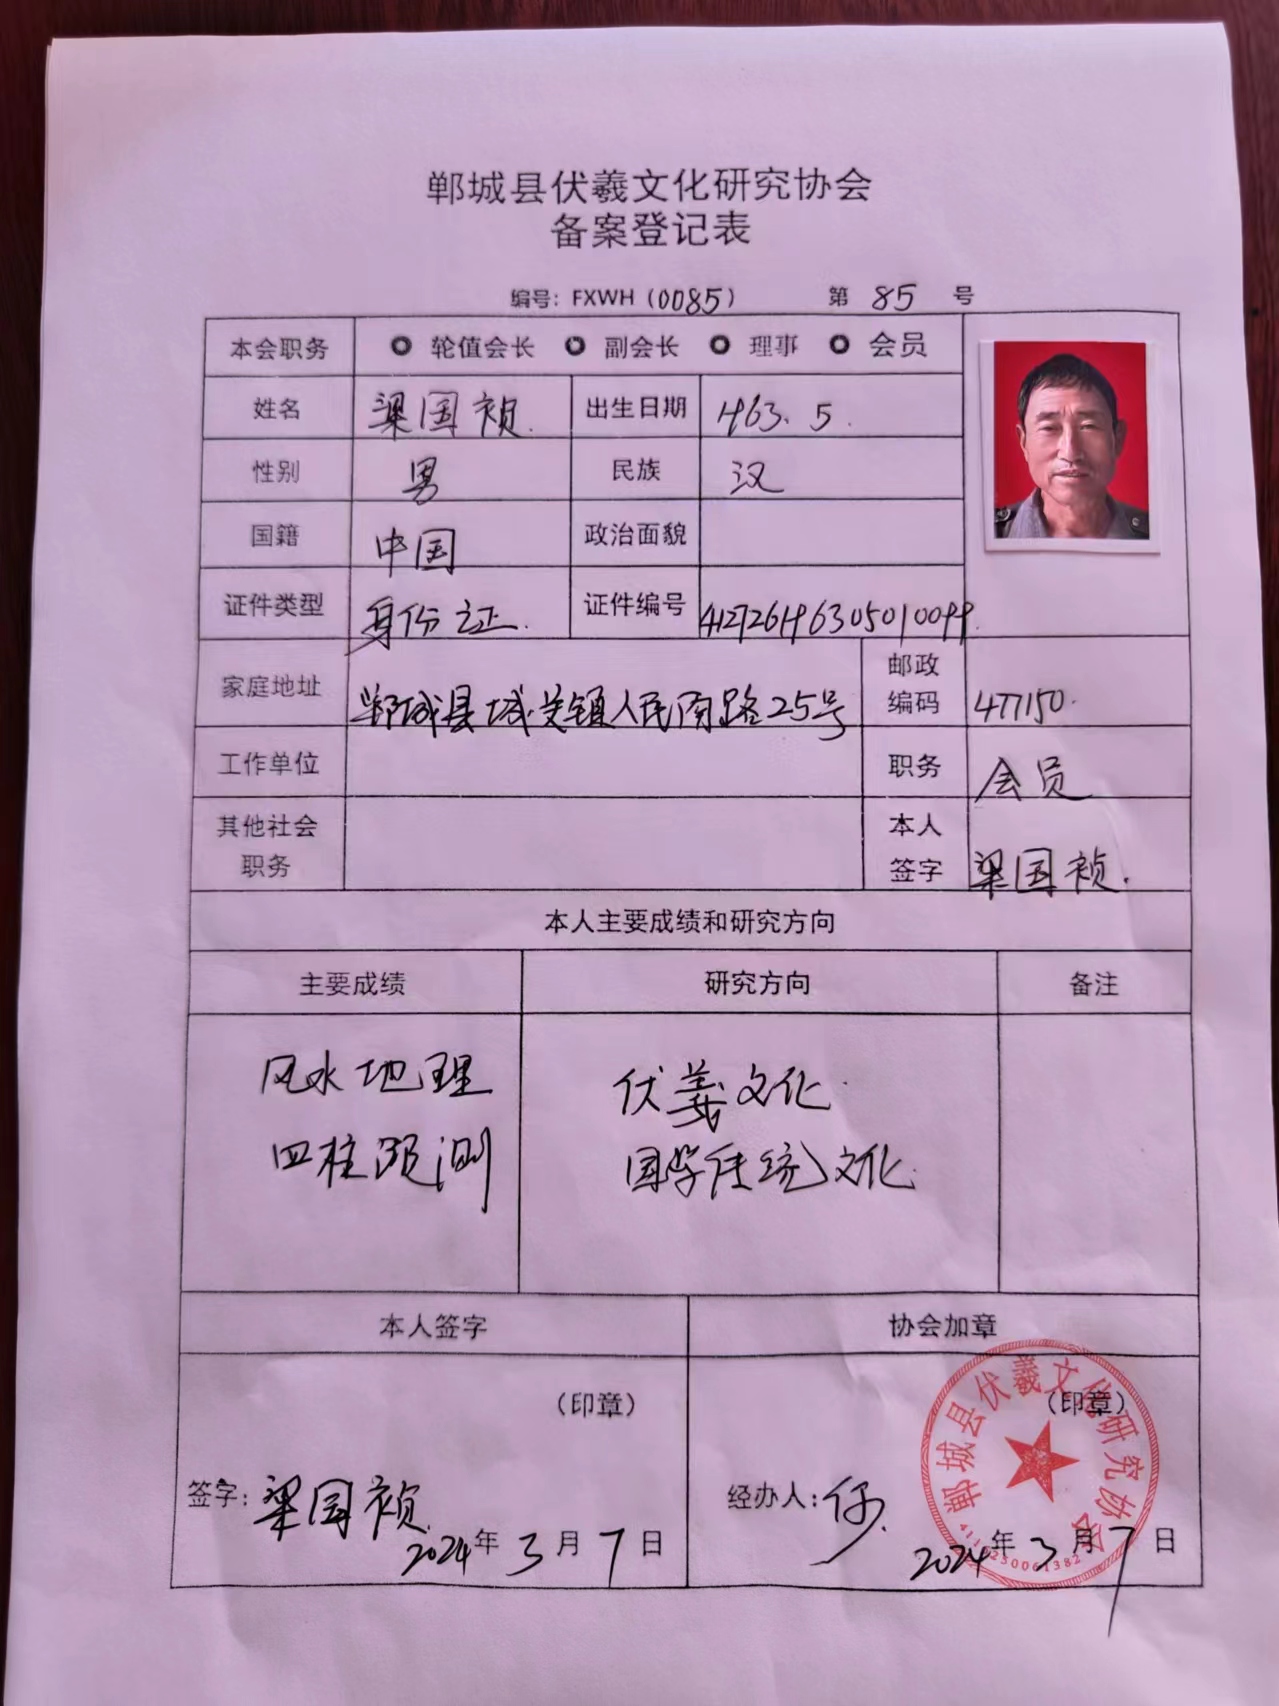 郸城县伏羲文化研究协会
备案登记表
编号：FXWH（0085） 第 85 号
本会职务 轮值会长 副会长 理事 会员
姓名 梁国祯 出生日期 1963.5.
性别 男 民族 汉
国籍 中国 政治面貌
证件类型 身份证 证件编号 412726196305010099
家庭地址 郸城县城关镇人民南路25号 邮政编码 477150
工作单位 职务 会员
其他社会职务 本人签字 梁国祯
本人主要成绩和研究方向
主要成绩 研究方向 备注
风水地理 伏羲文化
四柱预测 国学传统文化
本人签字 协会加章
（印章） （印章）
签字：梁国祯 经办人：
2024年3月7日 2024年3月7日
郸城县伏羲文化研究协会